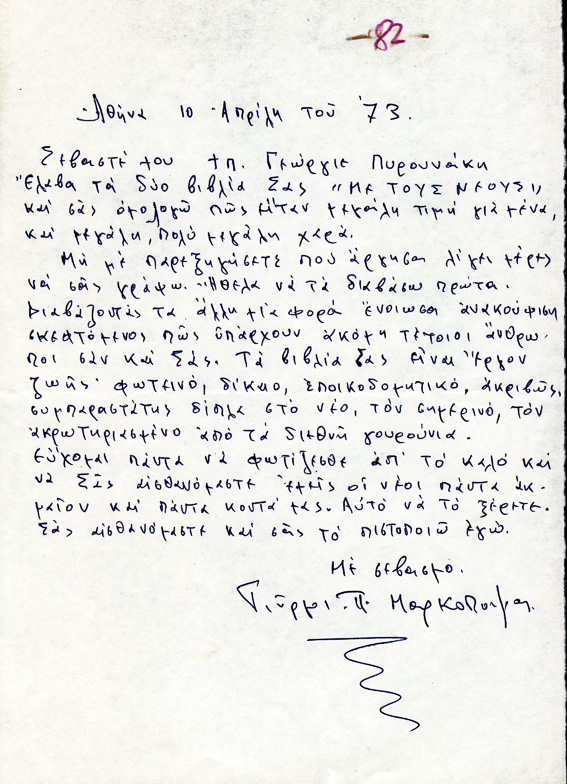 -82-
Ἀθήνα 10 Ἀπρίλη τοῦ '73.
Σεβαστέ μου π. Γεώργιε Πυρουνάκη
Ἔλαβα τά δύο βιβλία Σας "ΜΕ ΤΟΥΣ ΝΕΟΥΣ"
καί σᾶς ὁμολογῶ πῶς εἶταν μεγάλη τιμή γιά μένα,
καί μεγάλη, πολύ μεγάλη χαρά.
Μή μέ παρεξηγήσετε πού ἄργησα λίγες μέρες
νά σᾶς γράψω. Ἤθελα νά τά διαβάσω πρῶτα.
Διαβάζοντάς τα ἄλλη μία φορά ἔνοιωσα ἀνακούφιση
σκεπτόμενος πῶς ὑπάρχουν ἀκόμη τέτοιοι ἄνθρω-
ποι σάν καί Σᾶς. Τά βιβλία Σας εἶναι Ἔργον
ζωῆς· φωτεινό, δίκαιο, ἐποικοδομητικό, ἀκριβῶς,
συμπαραστάτης δίπλα στό νέο, τόν σημερινό, τόν
ἀκρωτηριασμένο ἀπό τά διεθνῆ γουρούνια.
Εὔχομαι πάντα νά φωτίζεσθε ἀπ' τό καλό καί
νά Σᾶς αἰσθανόμαστε ἐμεῖς οἱ νέοι πάντα ἀκ-
μαῖον καί πάντα κοντά μας. Αὐτό νά τό ξέρετε.
Σᾶς αἰσθανόμαστε καί σᾶς τό πιστοποιῶ ἐγώ.
Μέ σεβασμό.
Γιῶργος Π. Μαρκόπουλος.